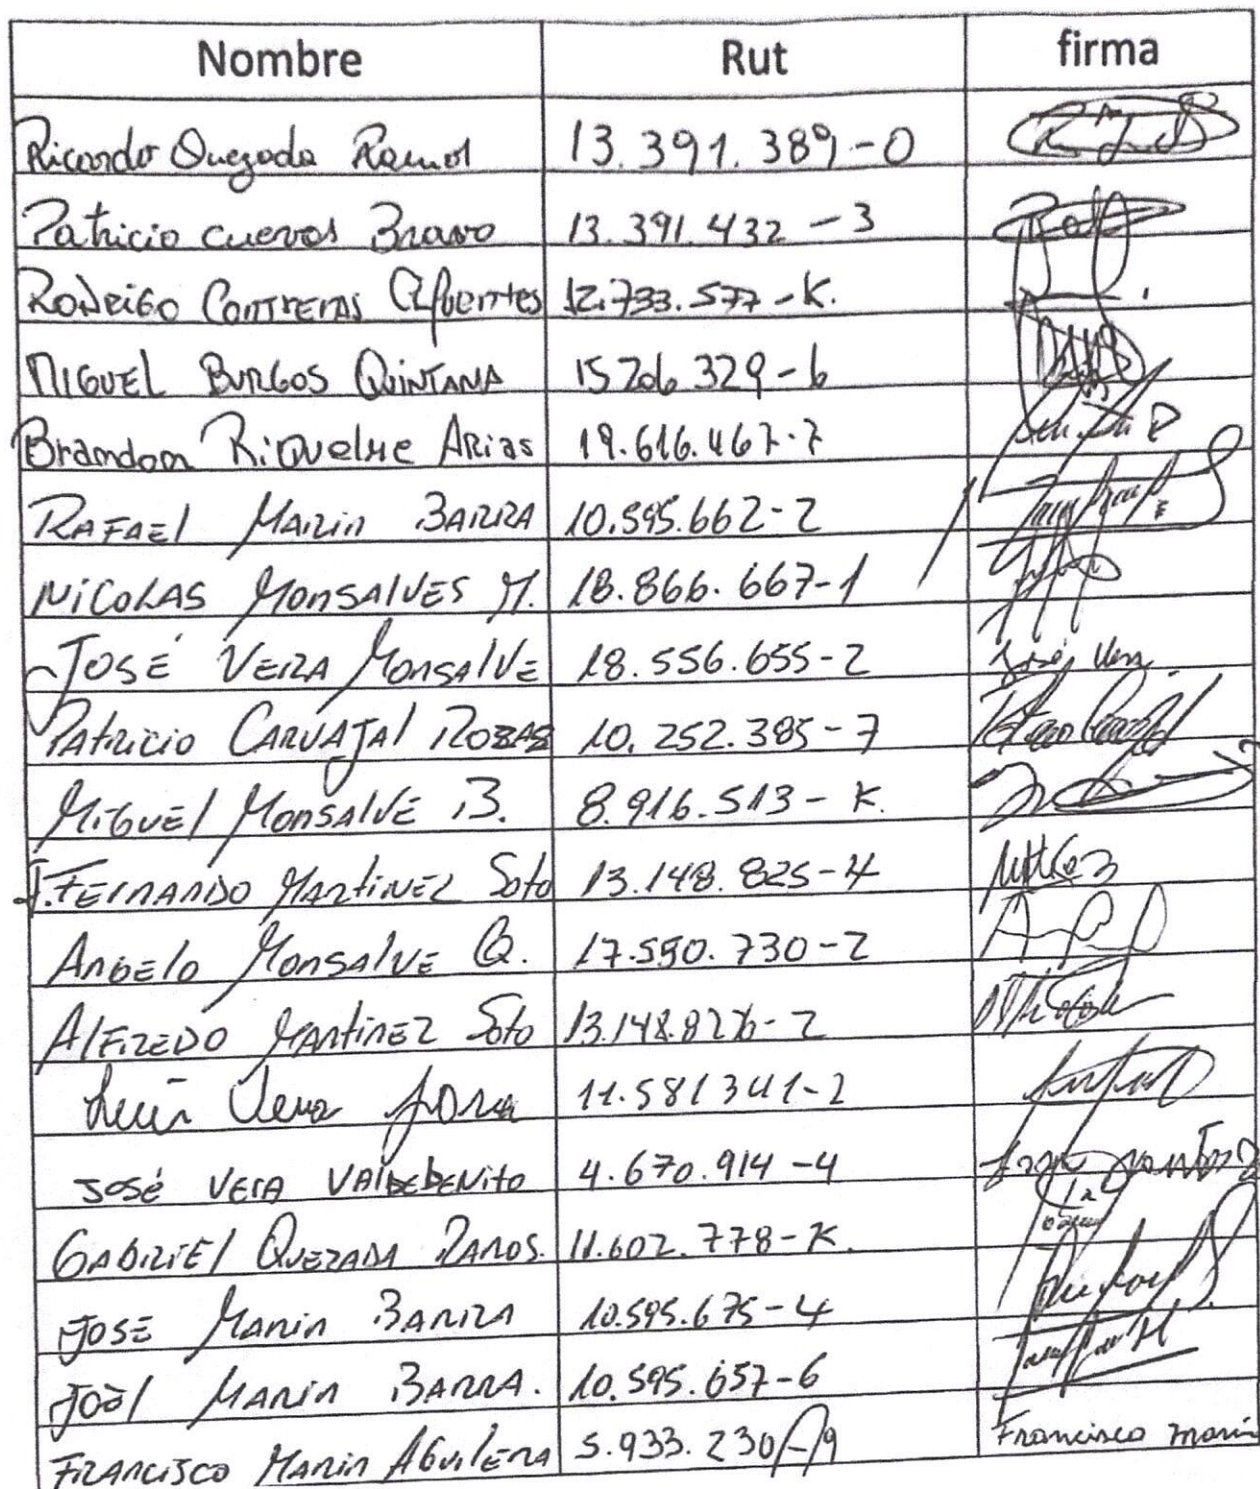 Nombre Rut firma
Ricardo Quezada Ramos 13.391.389-0
Patricio cuevas Bravo 13.391.432-3
RODRIGO CONTRERAS Cifuentes 12.733.577-K.
MIGUEL BURGOS QUINTANA 15206329-6
Brandon Riquelme Arias 19.616.467-7
RAFAEl MARin BARRA 10.595.662-2
NiCOLAS MONSALVES M. 18.866.667-1
JOSÉ VERA MONSALVE 18.556.655-2 José Vera
PAtRicio CARVAJAl ROZAS 10.252.385-7
MiGUEl MONSALVE B. 8.916.513-K.
J.FERNANDO MARtiNEZ Soto 13.148.825-4
ANGElo MONSALVE Q. 17.590.730-2
AlFREDO MARtiNEZ Soto 13.148.826-2
Luis Vera Jara 11.581341-2
JOSÉ VERA VAldEbENito 4.670.914-4
GABRiEl QUEZADA RAMOS. 11.602.778-K.
JOSÉ MARin BARRA 10.595.675-4
JOÉl MARiN BARRA. 10.595.657-6
FRANCiSCO MARin AGuilERA 5.933.230-9 Francisco marin